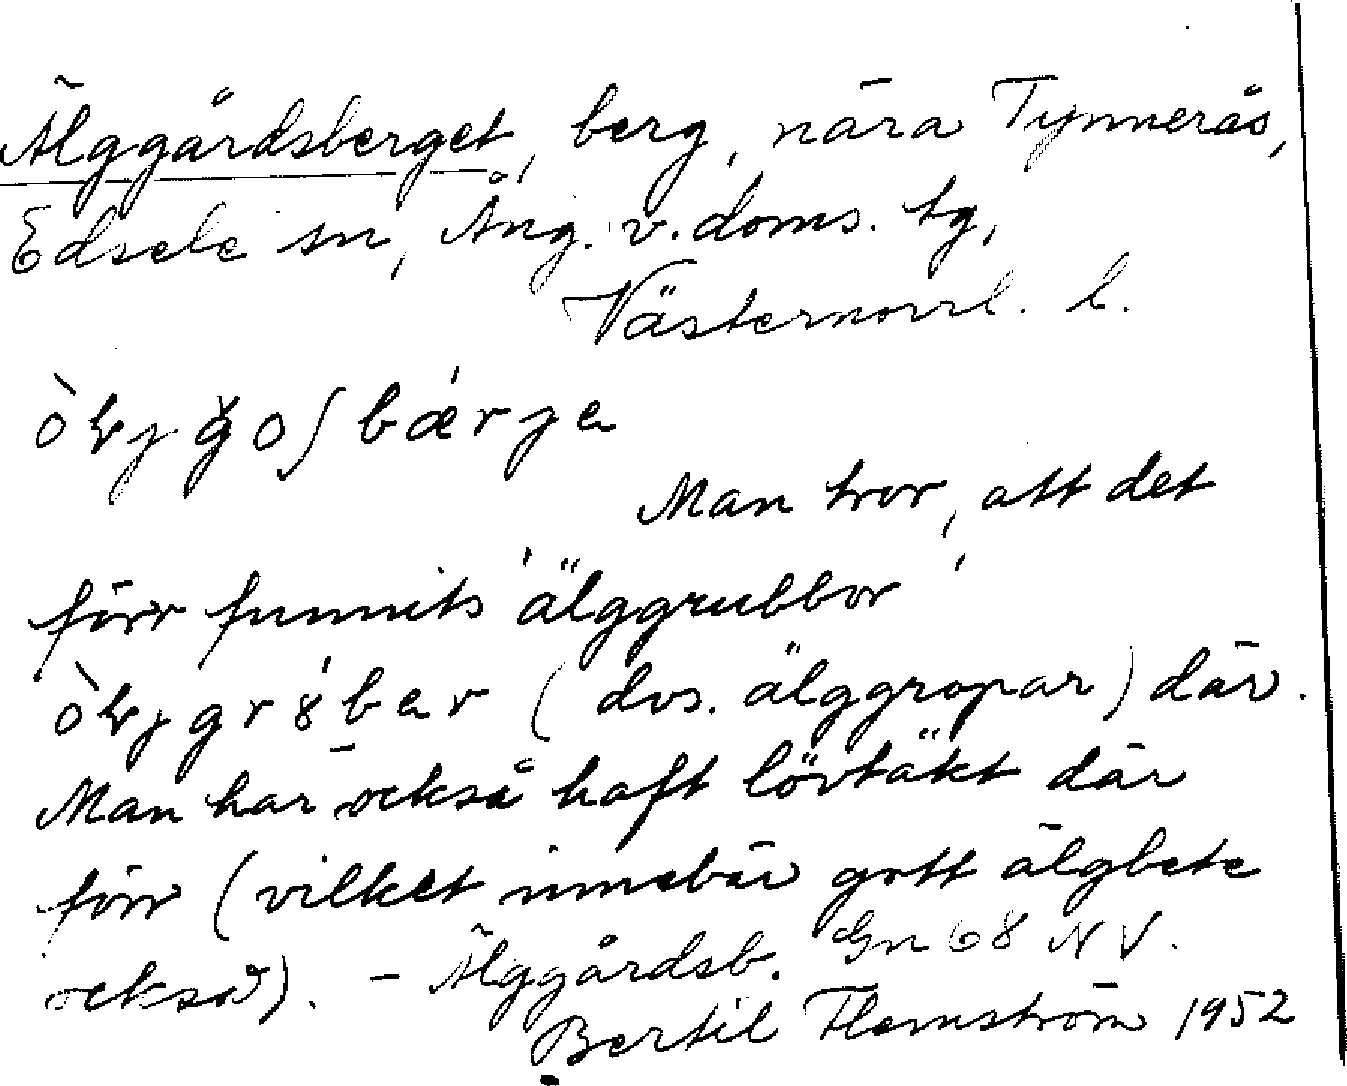 Älggårdsberget, berg, nära Tynnerås,
Edsele sn, Ång. v. doms. tg,
Västernorrl. l.
bǽrge
Man tror, att det
förr funnits 'älggrubbor'
(dvs. älggropar) där.
Man har också haft lövtäkt där
förr (vilket innebär gott älgbete
också). – Älggårdsb. Gn 68 NV.
Bertil Flemström 1952